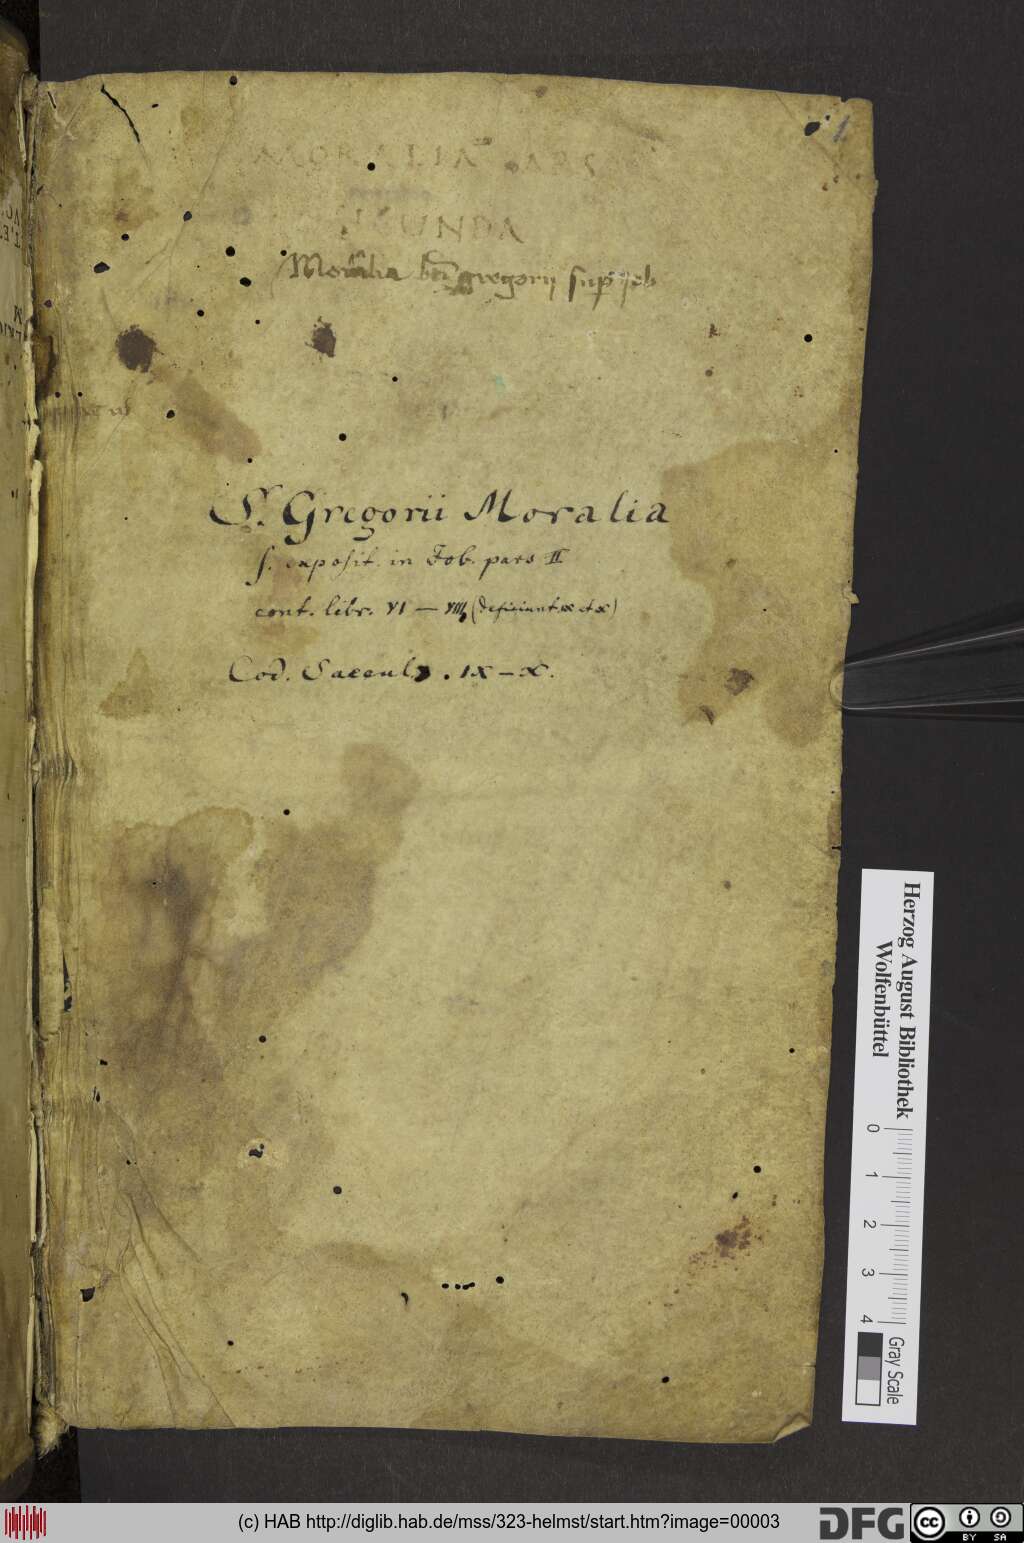 1
MORALIA PARS
SECUNDA
Moralia bti gregorii sup iob
S. Gregorii Moralia
s. exposit. in Job. pars II
cont. libr. VI – VIII (deficiunt IX et X)
Cod. Saecul. IX – X.
Herzog August Bibliothek
Wolfenbüttel
0 1 2 3 4
Gray Scale
(c) HAB http://diglib.hab.de/mss/323-helmst/start.htm?image=00003
DFG
cc BY SA